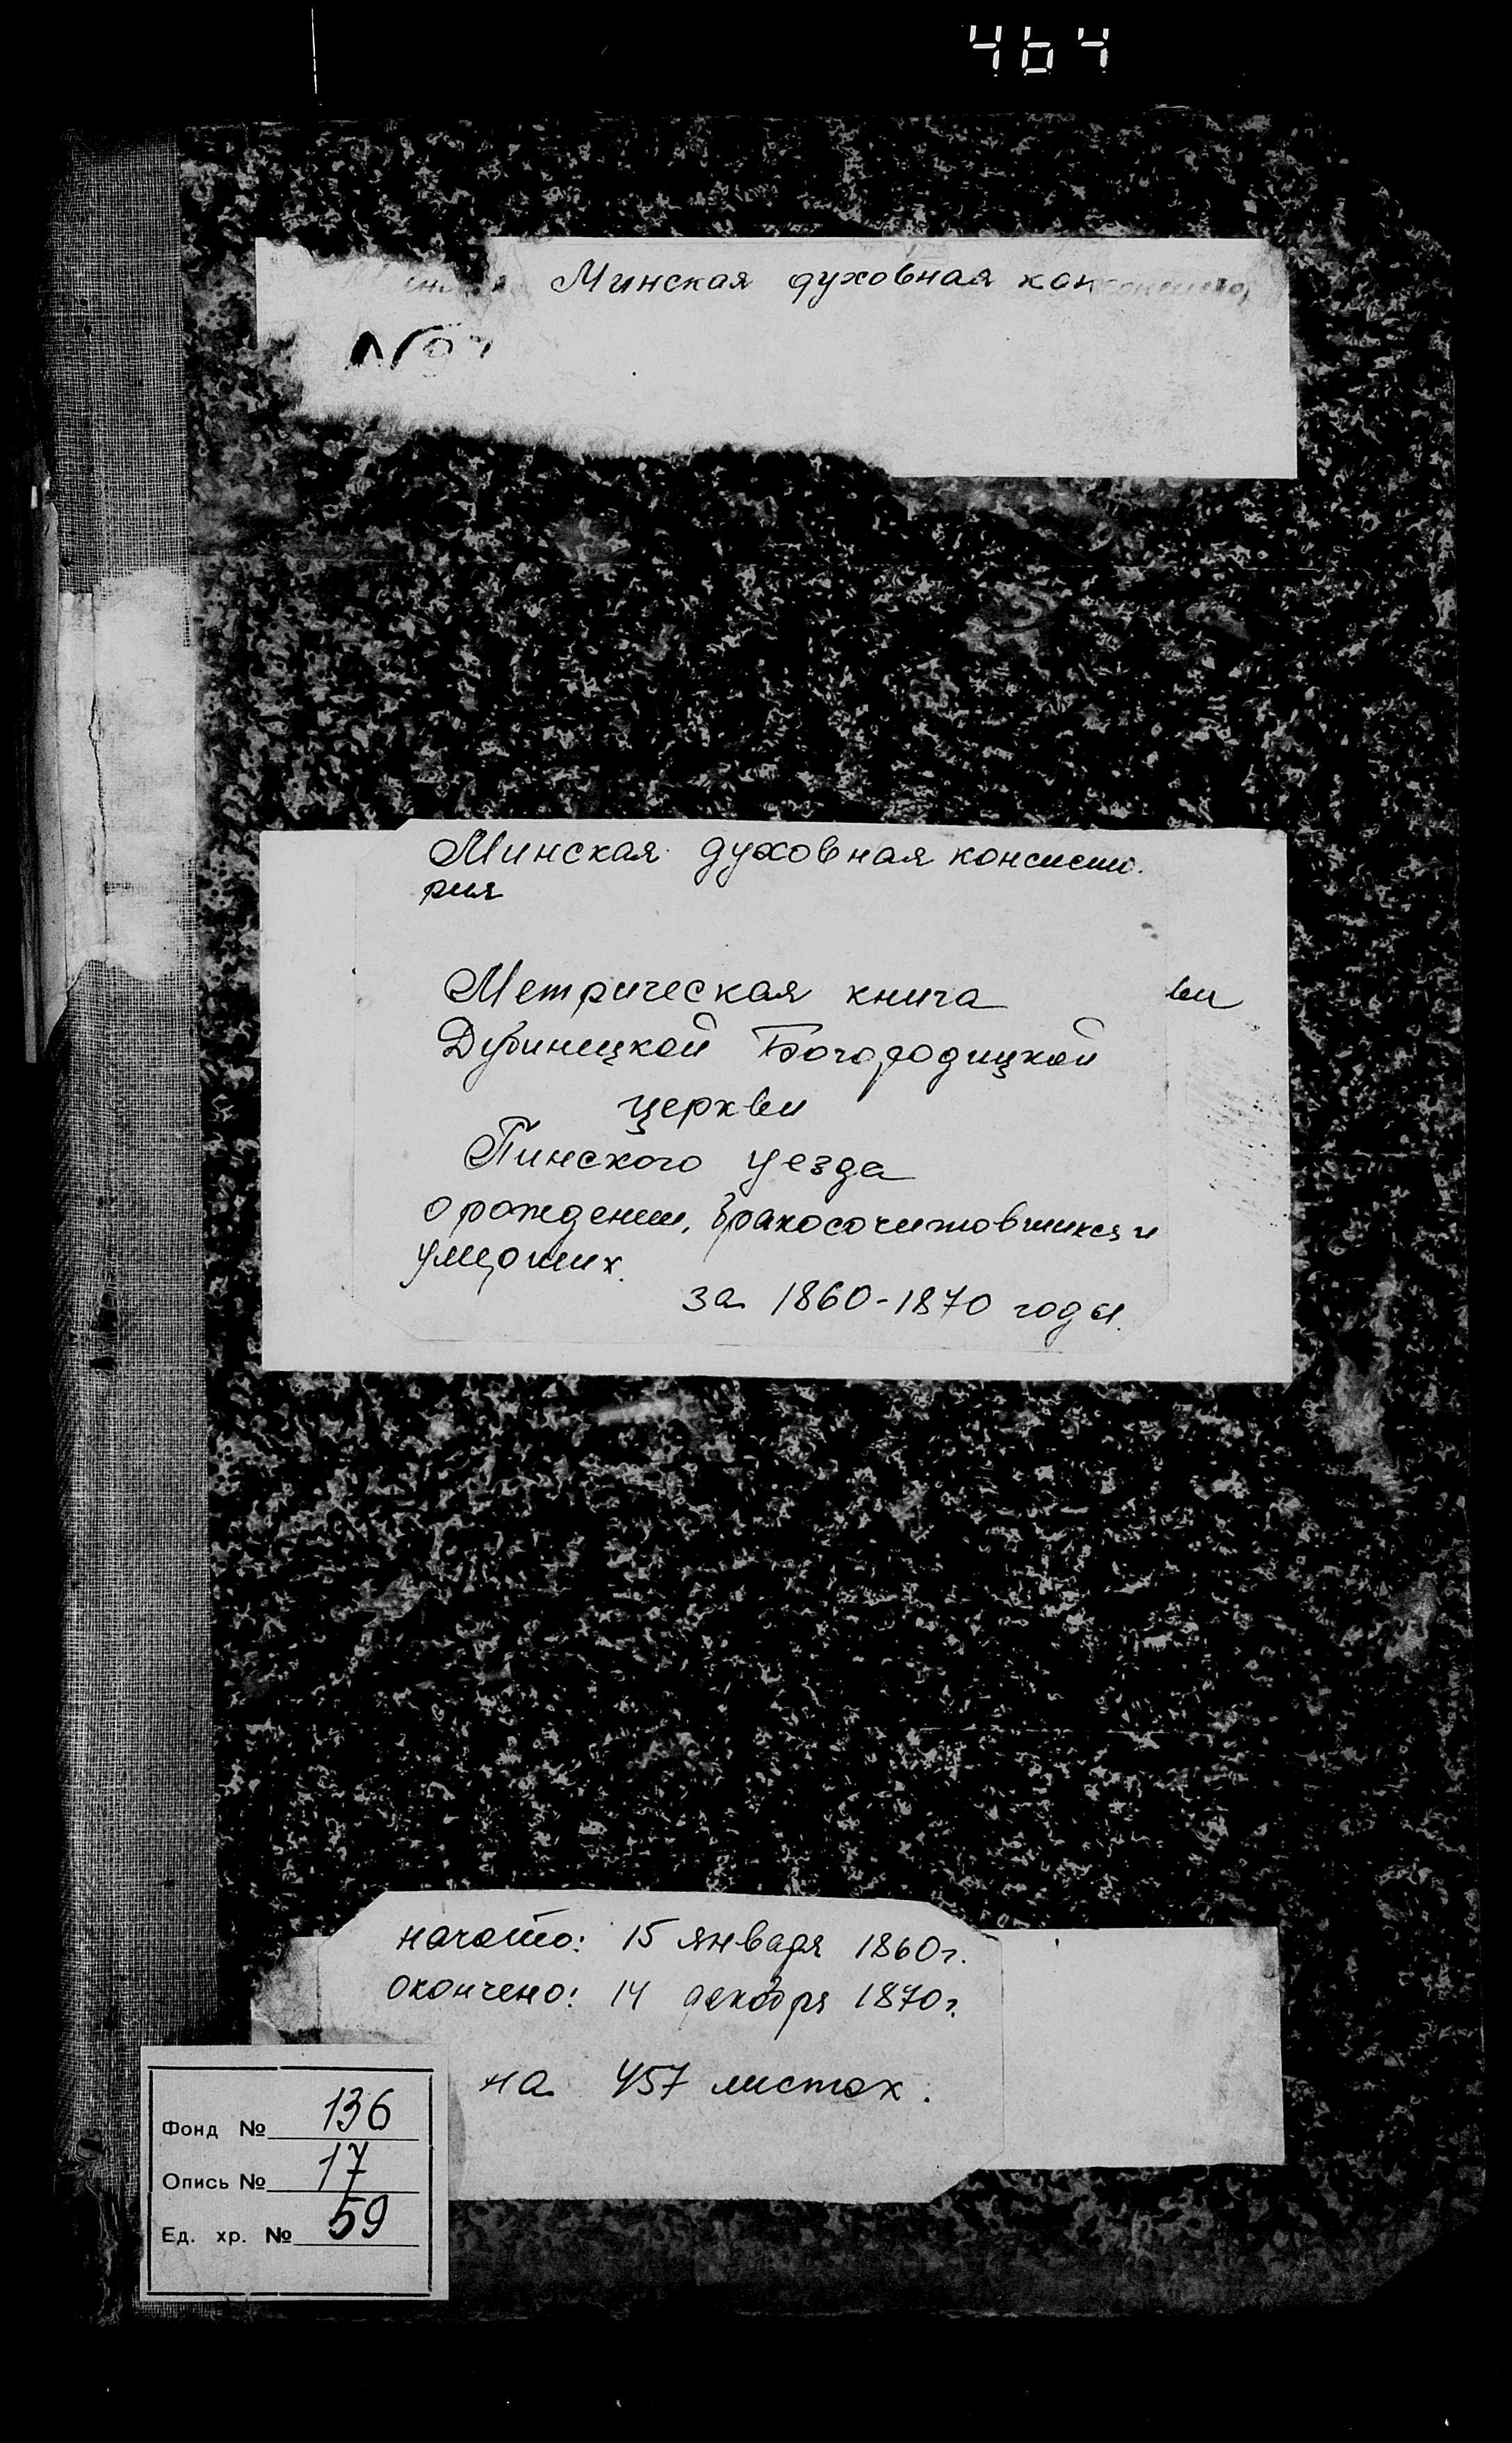 464
Минская духовная кон
№
Минская духовная консисто.
рия
Метрическая книга
ви
Дубинецкой Богородицкой
церкви
Пинского уезда
о рождении, бракосочитовшихся и
умерших.
за 1860-1870 годы.
начато: 15 января 1860г.
окончено: 14 декабря 1870г.
на 457 листах.
Фонд № 136
Опись № 17
Ед. хр. № 59